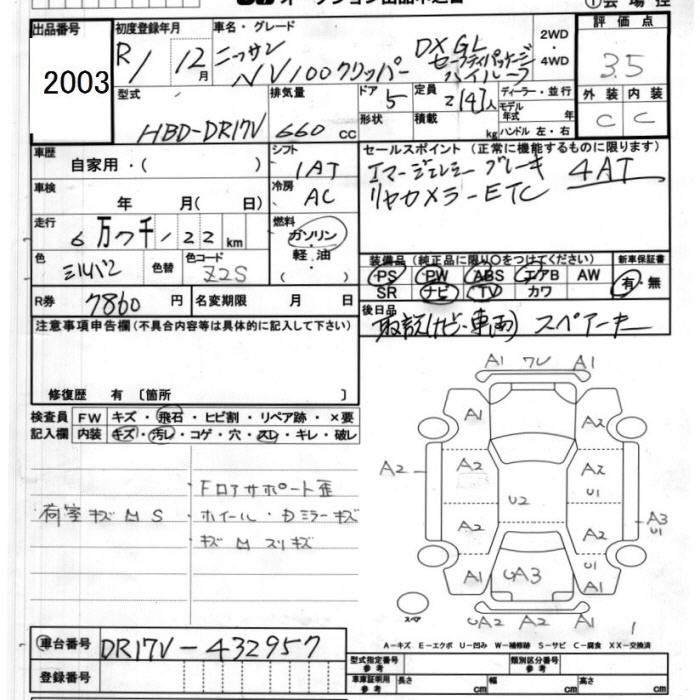 出品番号
2003
初度登録年月
R1 12月
車名・グレード
ニッサン
NV100クリッパー
DX GL
セーフティパッケージ
ハイルーフ
2WD
・
4WD
評価点
3.5
外装 内装
C C
型式
HBD-DR17V
排気量
660 cc
ドア
5
定員
2[4]人
形状
積載
kg
ディーラー・並行
モデル年式 年
ハンドル 左・右
車歴
自家用・( )
シフト
1AT
車検
年 月( 日)
冷房
AC
走行
6万7千122km
燃料
ガソリン
・
軽油
( )
色
シルバー
色替
色コード
Z2S
R券
7860円
名変期限 月 日
セールスポイント (正常に機能するものに限ります)
エマージェンシーブレーキ 4AT
リヤカメラーETC
装備品 (純正品に限り○をつけてください)
PS PW ABS エアB AW
SR ナビ TV カワ
新車保証書
有・無
後日品
取説(ナビ・車両) スペアキー
注意事項申告欄(不具合内容等は具体的に記入して下さい)
修復歴 有 〔箇所 〕
検査員記入欄
FW キズ・飛石・ヒビ割・リペア跡・×要
内装 キズ・汚レ・コゲ・穴・スレ・キレ・破レ
・Fロアサポート歪
荷室キズMS
・ホイール・Dミラーキズ
キズMスリキズ
A1 ワレ A1
A1 A2
A2 A2 A2
U1
U2
A2 A2 A3
U1 U1
A1 UA3 A1
スペア
UA2 A2 A2
1
A-キズ E-エクボ U-凹み W-補修跡 S-サビ C-腐食 XX-交換済
車台番号
DR17V-432957
登録番号
型式指定番号
参考
類別区分番号
参考
車庫証明用
参考
長さ cm 幅 cm 高さ cm